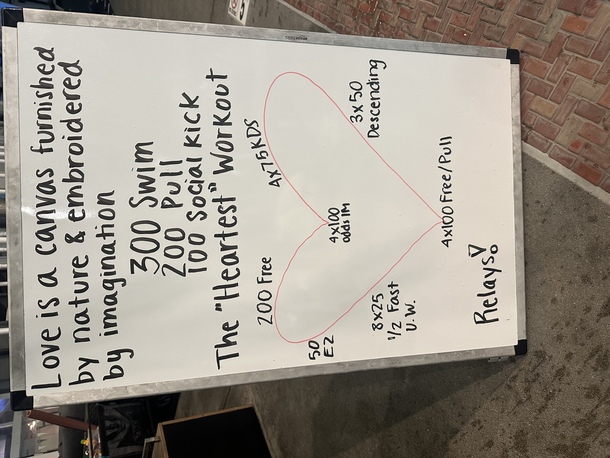 Love is a canvas furnished
by nature & embroidered
by imagination
300 Swim
200 Pull
100 Social Kick
The "Heartest" Workout
200 Free
4x75 KDS
50
EZ
4x100
odds IM
3x50
Descending
8x25
1/2 Fast
U.W.
4x100 Free/Pull
Relays!